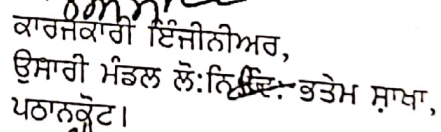 ਕਾਰਜਕਾਰੀ ਇੰਜੀਨੀਅਰ,
ਉਸਾਰੀ ਮੰਡਲ ਲੋ:ਨਿ: ਭਤੇਮ ਸ਼ਾਖਾ,
ਪਠਾਨਕੋਟ।